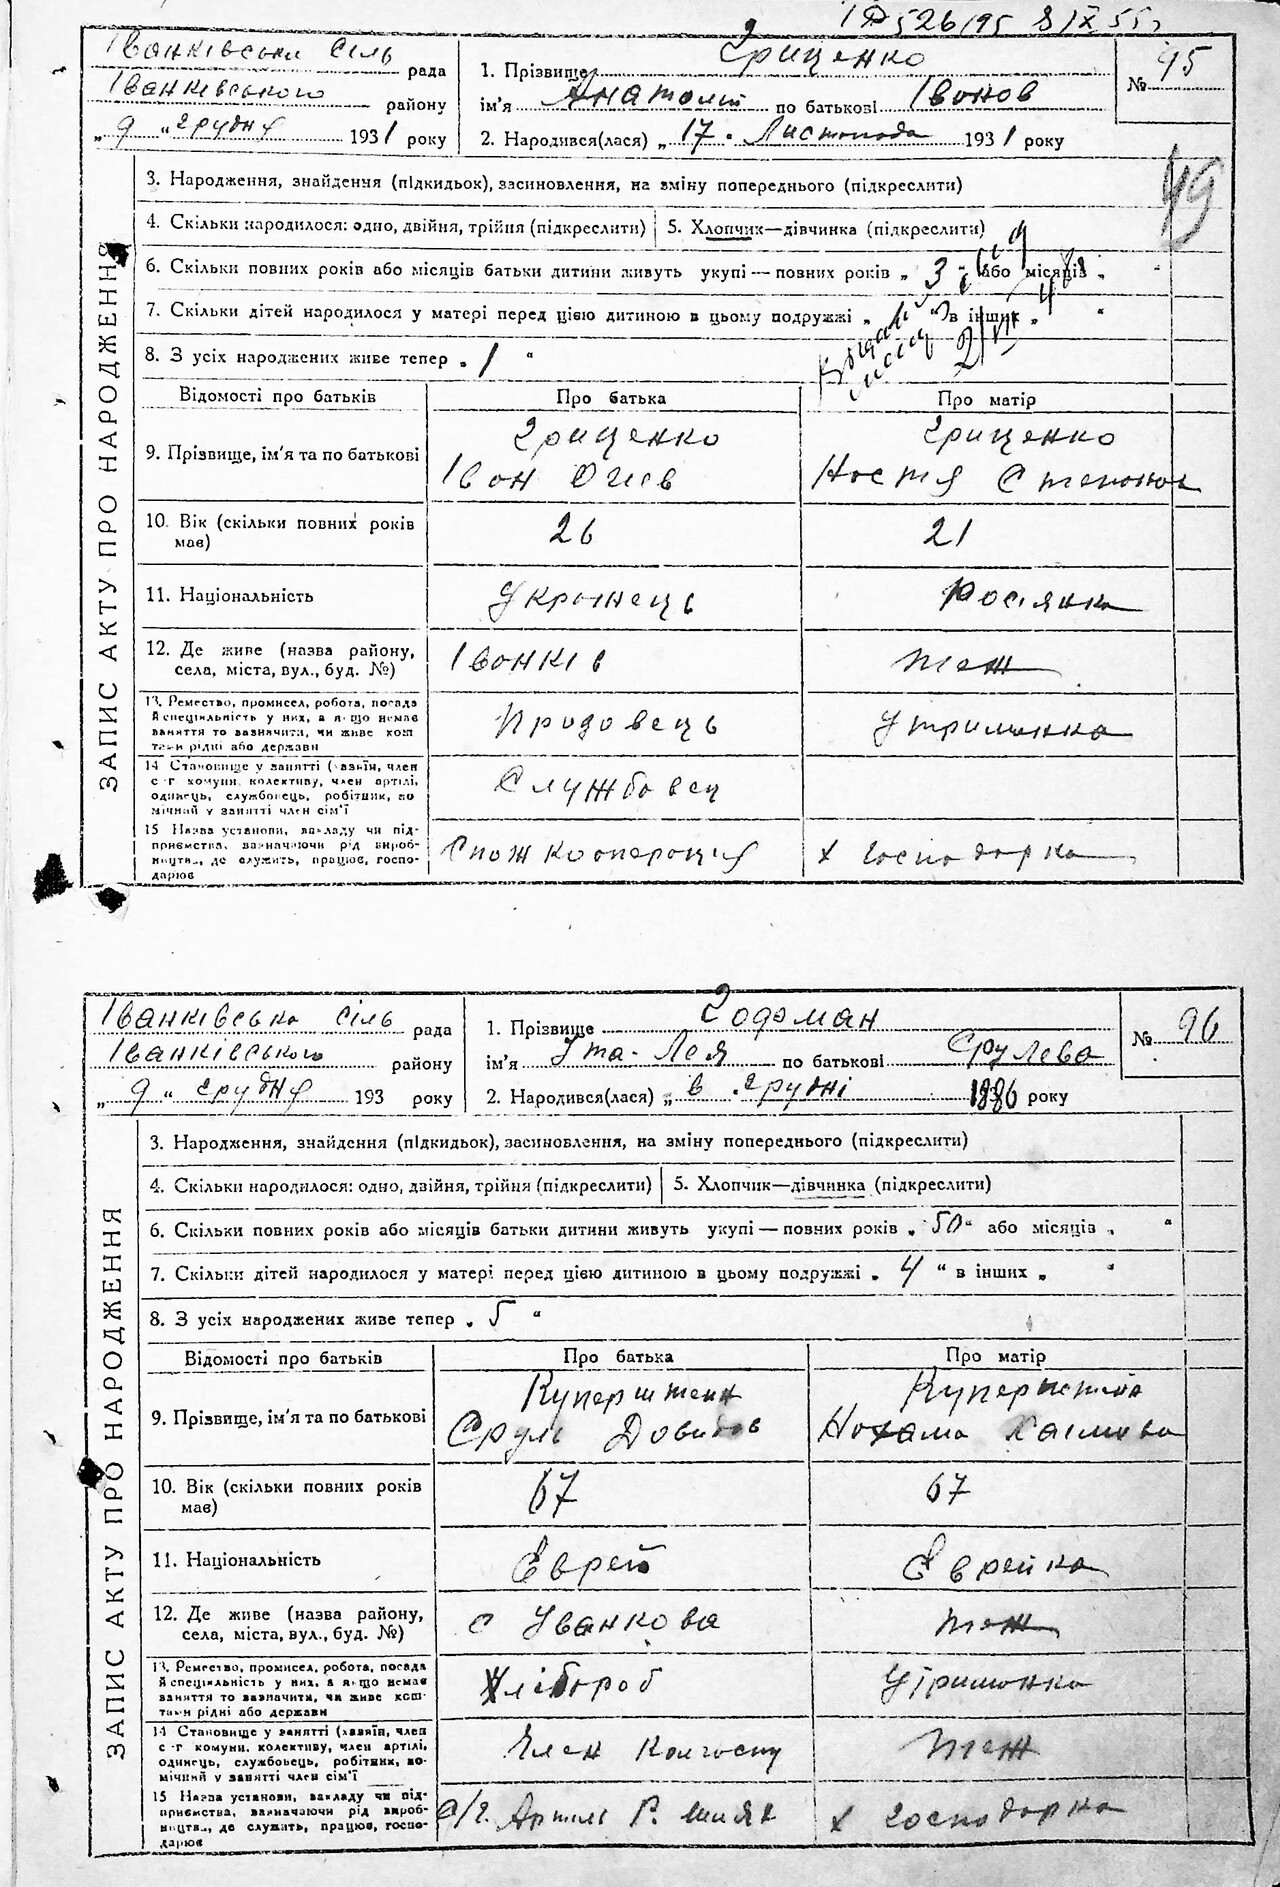 526/95 8/IX 55 г
Іванківська сіль рада
Іванківського району
„ 9 “ грудня 1931 року
1. Прізвище Гриценко
ім'я Анатолій по батькові Іванов
2. Народився(лася) „ 17 “ Листопада 1931 року
№ 95
49
3. Народження, знайдення (підкидьок), засиновлення, на зміну попереднього (підкреслити)
4. Скільки народилося: одно, двійня, трійня (підкреслити) 5. Хлопчик—дівчинка (підкреслити)
6. Скільки повних років або місяців батьки дитини живуть укупі — повних років „ 3 “ або місяців „ “
7. Скільки дітей народилося у матері перед цією дитиною в цьому подружжі „ “ в інших „ “
8. З усіх народжених живе тепер „ 1 “
ЗАПИС АКТУ ПРО НАРОДЖЕННЯ
Відомості про батьків Про батька Про матір
9. Прізвище, ім'я та по батькові
Гриценко
Іван
Гриценко
Настя
10. Вік (скільки повних років має)
26
21
11. Національність
Українець
Росіянка
12. Де живе (назва району, села, міста, вул., буд. №)
Іванків
теж
13. Ремество, промисел, робота, посада й спеціяльність у них, а якщо немає заняття то зазначити, чи живе коштами рідні або держави
Продавець
Утриманка
14 Становище у занятті (хазяїн, член с-г комуни, колективу, член артілі, одинець, службовець, робітник, помічний у занятті член сім'ї
Службовец
15 Назва установи, закладу чи підприємства, зазначаючи рід виробництва, де служить, працює, господарює
Спож кооперація
х господарка
Іванківська сіль рада
Іванківського району
„ 9 “ грудня 193 року
1. Прізвище Гофман
ім'я Ута-Лея по батькові Срулева
2. Народився(лася) „ в “ грудні 1886 року
№ 96
3. Народження, знайдення (підкидьок), засиновлення, на зміну попереднього (підкреслити)
4. Скільки народилося: одно, двійня, трійня (підкреслити) 5. Хлопчик—дівчинка (підкреслити)
6. Скільки повних років або місяців батьки дитини живуть укупі — повних років „ 50 “ або місяців „ “
7. Скільки дітей народилося у матері перед цією дитиною в цьому подружжі „ 4 “ в інших „ “
8. З усіх народжених живе тепер „ 5 “
ЗАПИС АКТУ ПРО НАРОДЖЕННЯ
Відомості про батьків Про батька Про матір
9. Прізвище, ім'я та по батькові
Куперштеин
Сруль Довидов
Куперштеин
Нохама Хаимова
10. Вік (скільки повних років має)
67
67
11. Національність
Єврей
Єврейка
12. Де живе (назва району, села, міста, вул., буд. №)
с Уванкова
теж
13. Ремество, промисел, робота, посада й спеціяльність у них, а якщо немає заняття то зазначити, чи живе коштами рідні або держави
Хлібороб
Утриманка
14 Становище у занятті (хазяїн, член с-г комуни, колективу, член артілі, одинець, службовець, робітник, помічний у занятті член сім'ї
Член колгоспу
теж
15 Назва установи, закладу чи підприємства, зазначаючи рід виробництва, де служить, працює, господарює
с/г. Артиль Р. шлях
х господарка